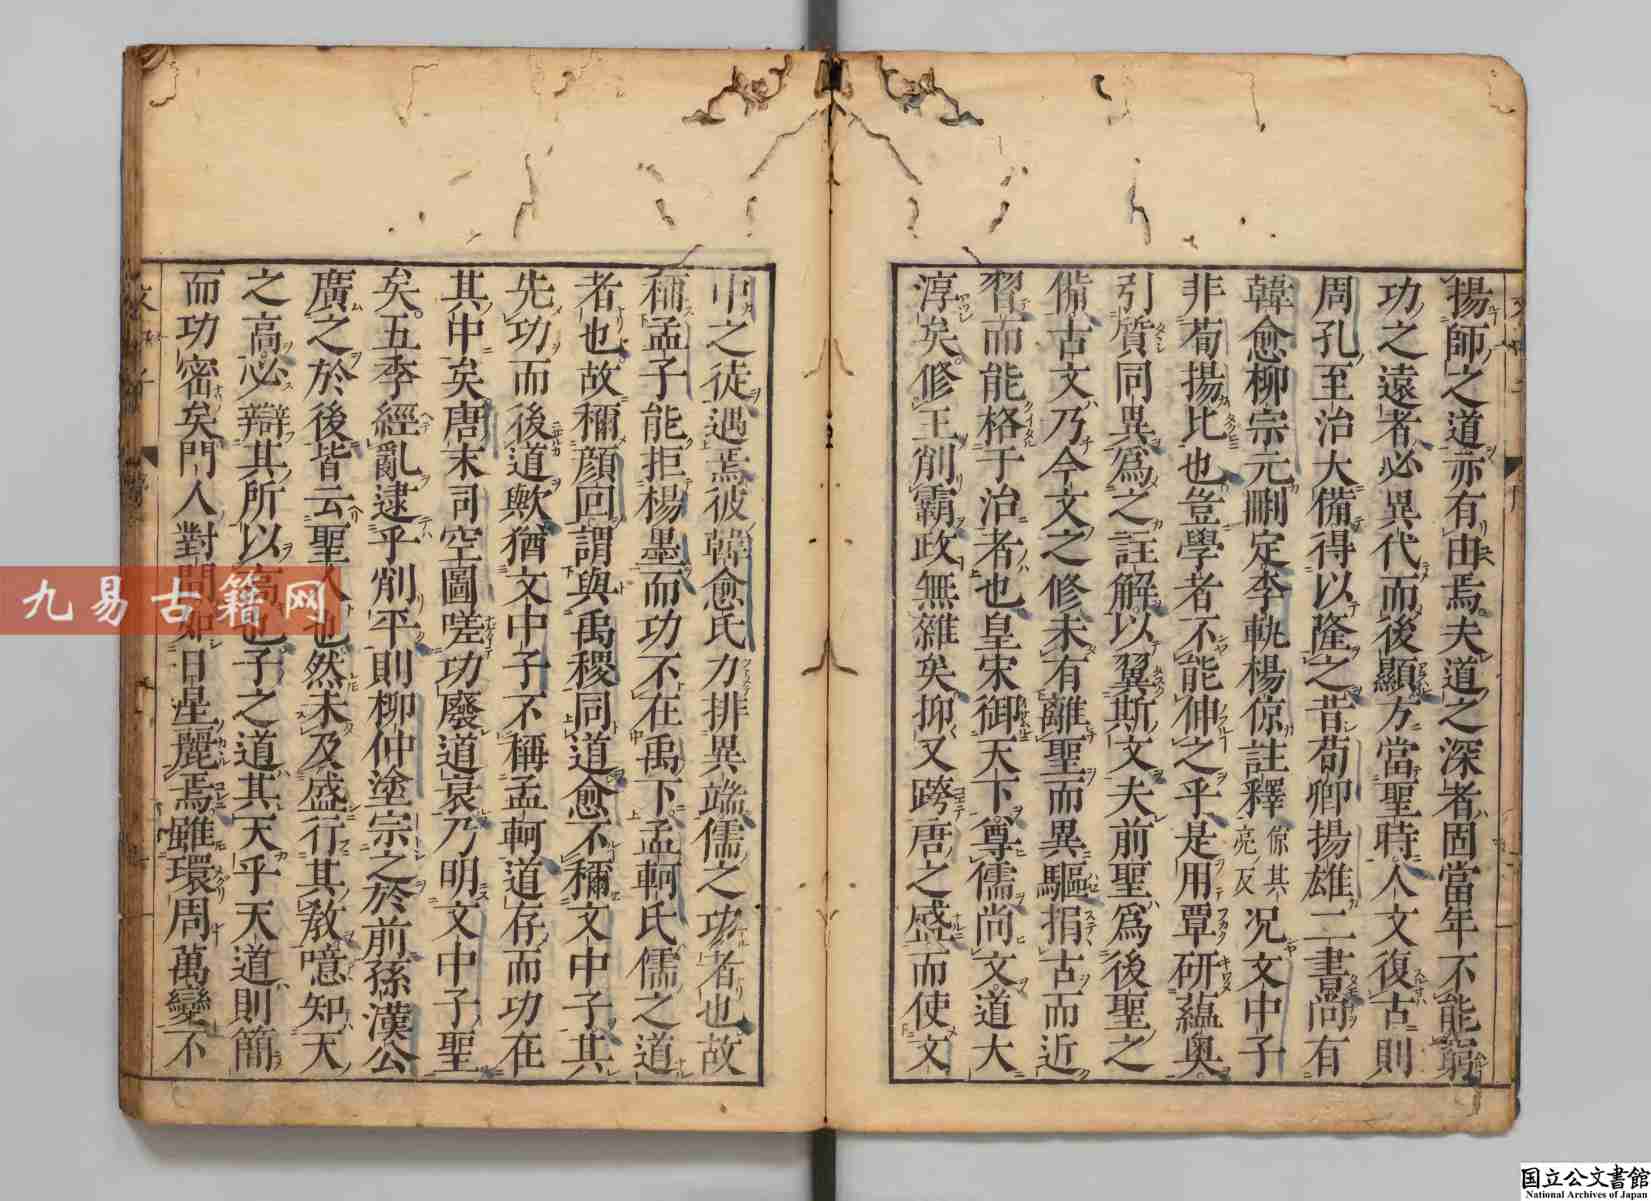 揚師之道亦有由焉夫道之深者固當年不能窮
功之遠者必異代而後顯方當聖時人文復古則
周孔至治大備得以隆之昔荀卿揚雄二書尚有
韓愈柳宗元刪定李軌楊倞註釋倞其亮反况文中子
非荀揚比也豈學者不能伸之乎是用覃研蘊奥
引質同異爲之註解以翼斯文夫前聖爲後聖之
備古文乃今文之修未有離聖而異驅捐古而近
習而能格于治者也皇宋御天下尊儒尚文道大
淳矣修王削霸政無雜矣抑又跨唐之盛而使文
中之徒遇焉彼韓愈氏力排異端儒之功者也故
稱孟子能拒楊墨而功不在禹下孟軻氏儒之道
者也故稱顔回謂與禹稷同道愈不稱文中子其
先功而後道歟猶文中子不稱孟軻道存而功在
其中矣唐末司空圖嗟功廢道衰乃明文中子聖
矣五季經亂逮乎削平則柳仲塗宗之於前孫漢公
廣之於後皆云聖人也然未及盛行其教噫知天
之高必辯其所以高也子之道其天乎天道則簡
而功密矣門人對問如日星麗焉雖環周萬變不
九易古籍网
国立公文書館
National Archives of Japan